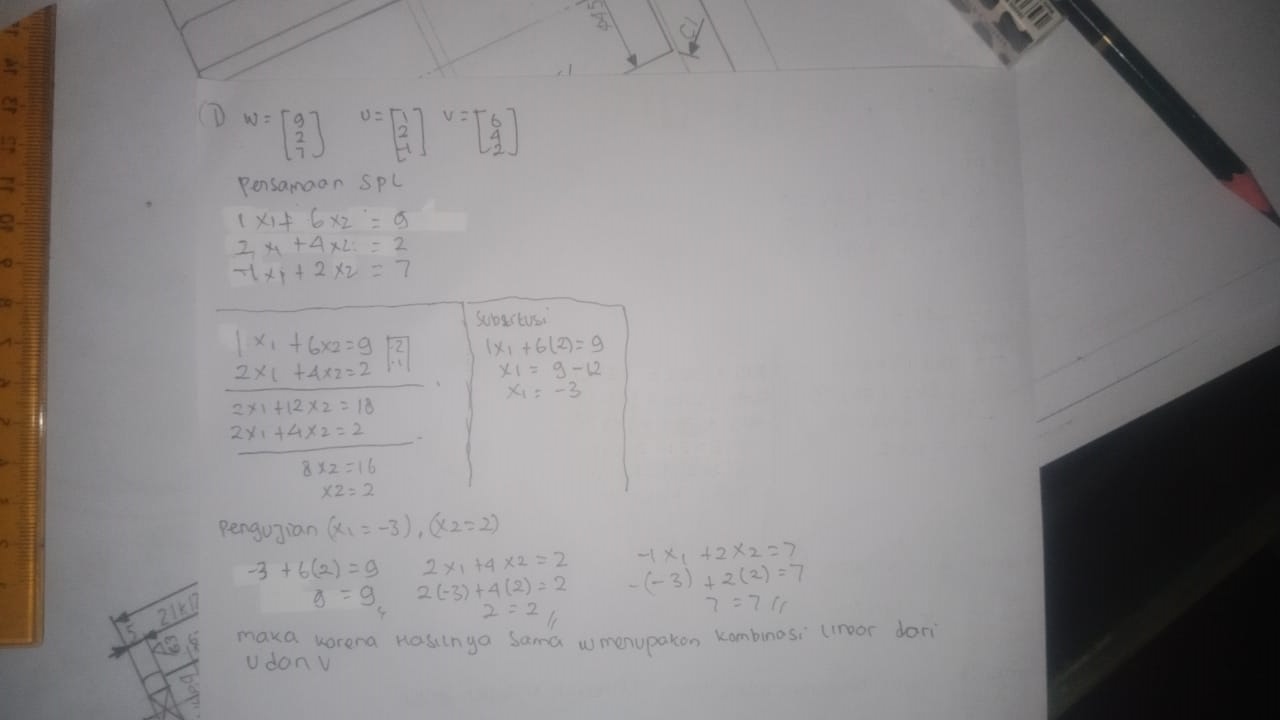 ① W = [9 2 7] U = [1 2 -1] V = [6 4 2]
Persamaan SPL
1 x1 + 6 x2 = 9
2 x1 + 4 x2 = 2
-1 x1 + 2 x2 = 7
1 x1 + 6x2 = 9 |2|
2x1 + 4x2 = 2 |1|
2x1 + 12x2 = 18
2x1 + 4x2 = 2
8x2 = 16
x2 = 2
Subsitusi
1x1 + 6(2) = 9
x1 = 9 - 12
x1 = -3
Pengujian (x1 = -3), (x2 = 2)
-3 + 6(2) = 9
9 = 9
2x1 + 4x2 = 2
2(-3) + 4(2) = 2
2 = 2
-1x1 + 2x2 = 7
-(-3) + 2(2) = 7
7 = 7
maka karena Hasilnya Sama w merupakan kombinasi linear dari
U dan V